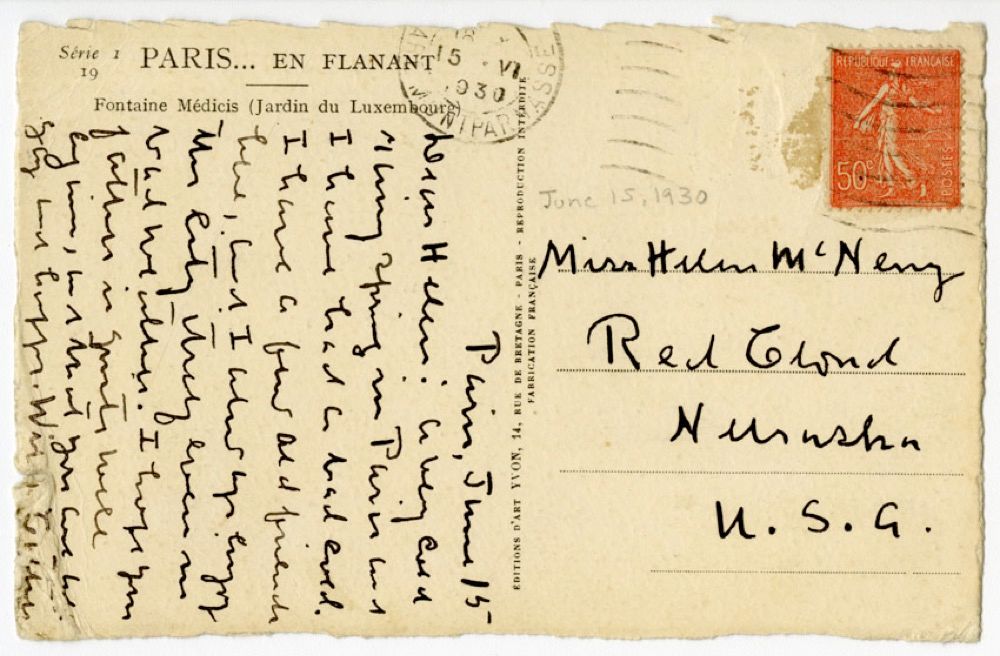 Série 1
19
PARIS... EN FLANANT
Fontaine Médicis (Jardin du Luxembourg)
15 VI
1930
MONTPARNASSE
REPUBLIQUE FRANÇAISE
50c
POSTES
June 15, 1930
Paris, June 15
Dear Helen: A very cold
rainy Spring in Paris and
I have had a bad cold.
I have a few old friends
here, and I always enjoy
the City itself even in
bad weather. I hope your
father is quite well
by now, and that you are
gay and happy. Willa Cather
EDITIONS D'ART YVON, 14, RUE DE BRETAGNE - PARIS - REPRODUCTION INTERDITE
FABRICATION FRANÇAISE
Miss Helen McNeny
Red Cloud
Nebraska
U. S. A.